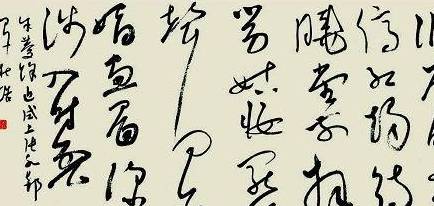 停红烛待
晓堂前拜
舅姑妆罢
声问夫
婿画眉深
浅入时无
朱庆馀近试上张水部